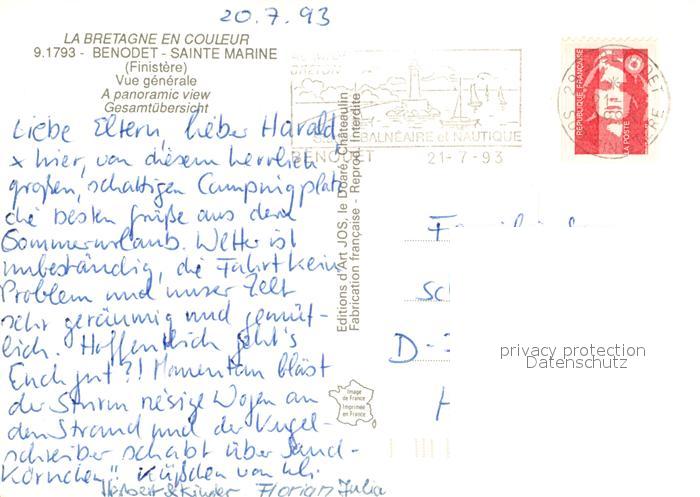 20.7.93
LA BRETAGNE EN COULEUR
9.1793 - BENODET - SAINTE MARINE
(Finistère)
Vue générale
A panoramic view
Gesamtübersicht
Liebe Eltern, lieber Harald
x hier, von diesem herrlich
großen, schattigen Campingplatz
die besten Grüße aus dem
Sommerurlaub. Wetter ist
unbeständig, die Fahrt kein
Problem und unser Zelt
sehr geräumig und gemüt-
lich. Hoffentlich geht's
Euch gut?! Momentan bläst
der Sturm riesige Wogen an
den Strand und der Kugel-
schreiber schabt über Sand-
Körnchen". Küßchen von
Herbert & Kinder Florian Julia
Editions d'Art JOS, le Doaré, Châteaulin
Fabrication française - Reprod. Interdite
BALNÉAIRE et NAUTIQUE
BENODET 21-7-93
REPUBLIQUE FRANÇAISE
LA POSTE
Image
de France
Imprimée
en France
D-
privacy protection
Datenschutz